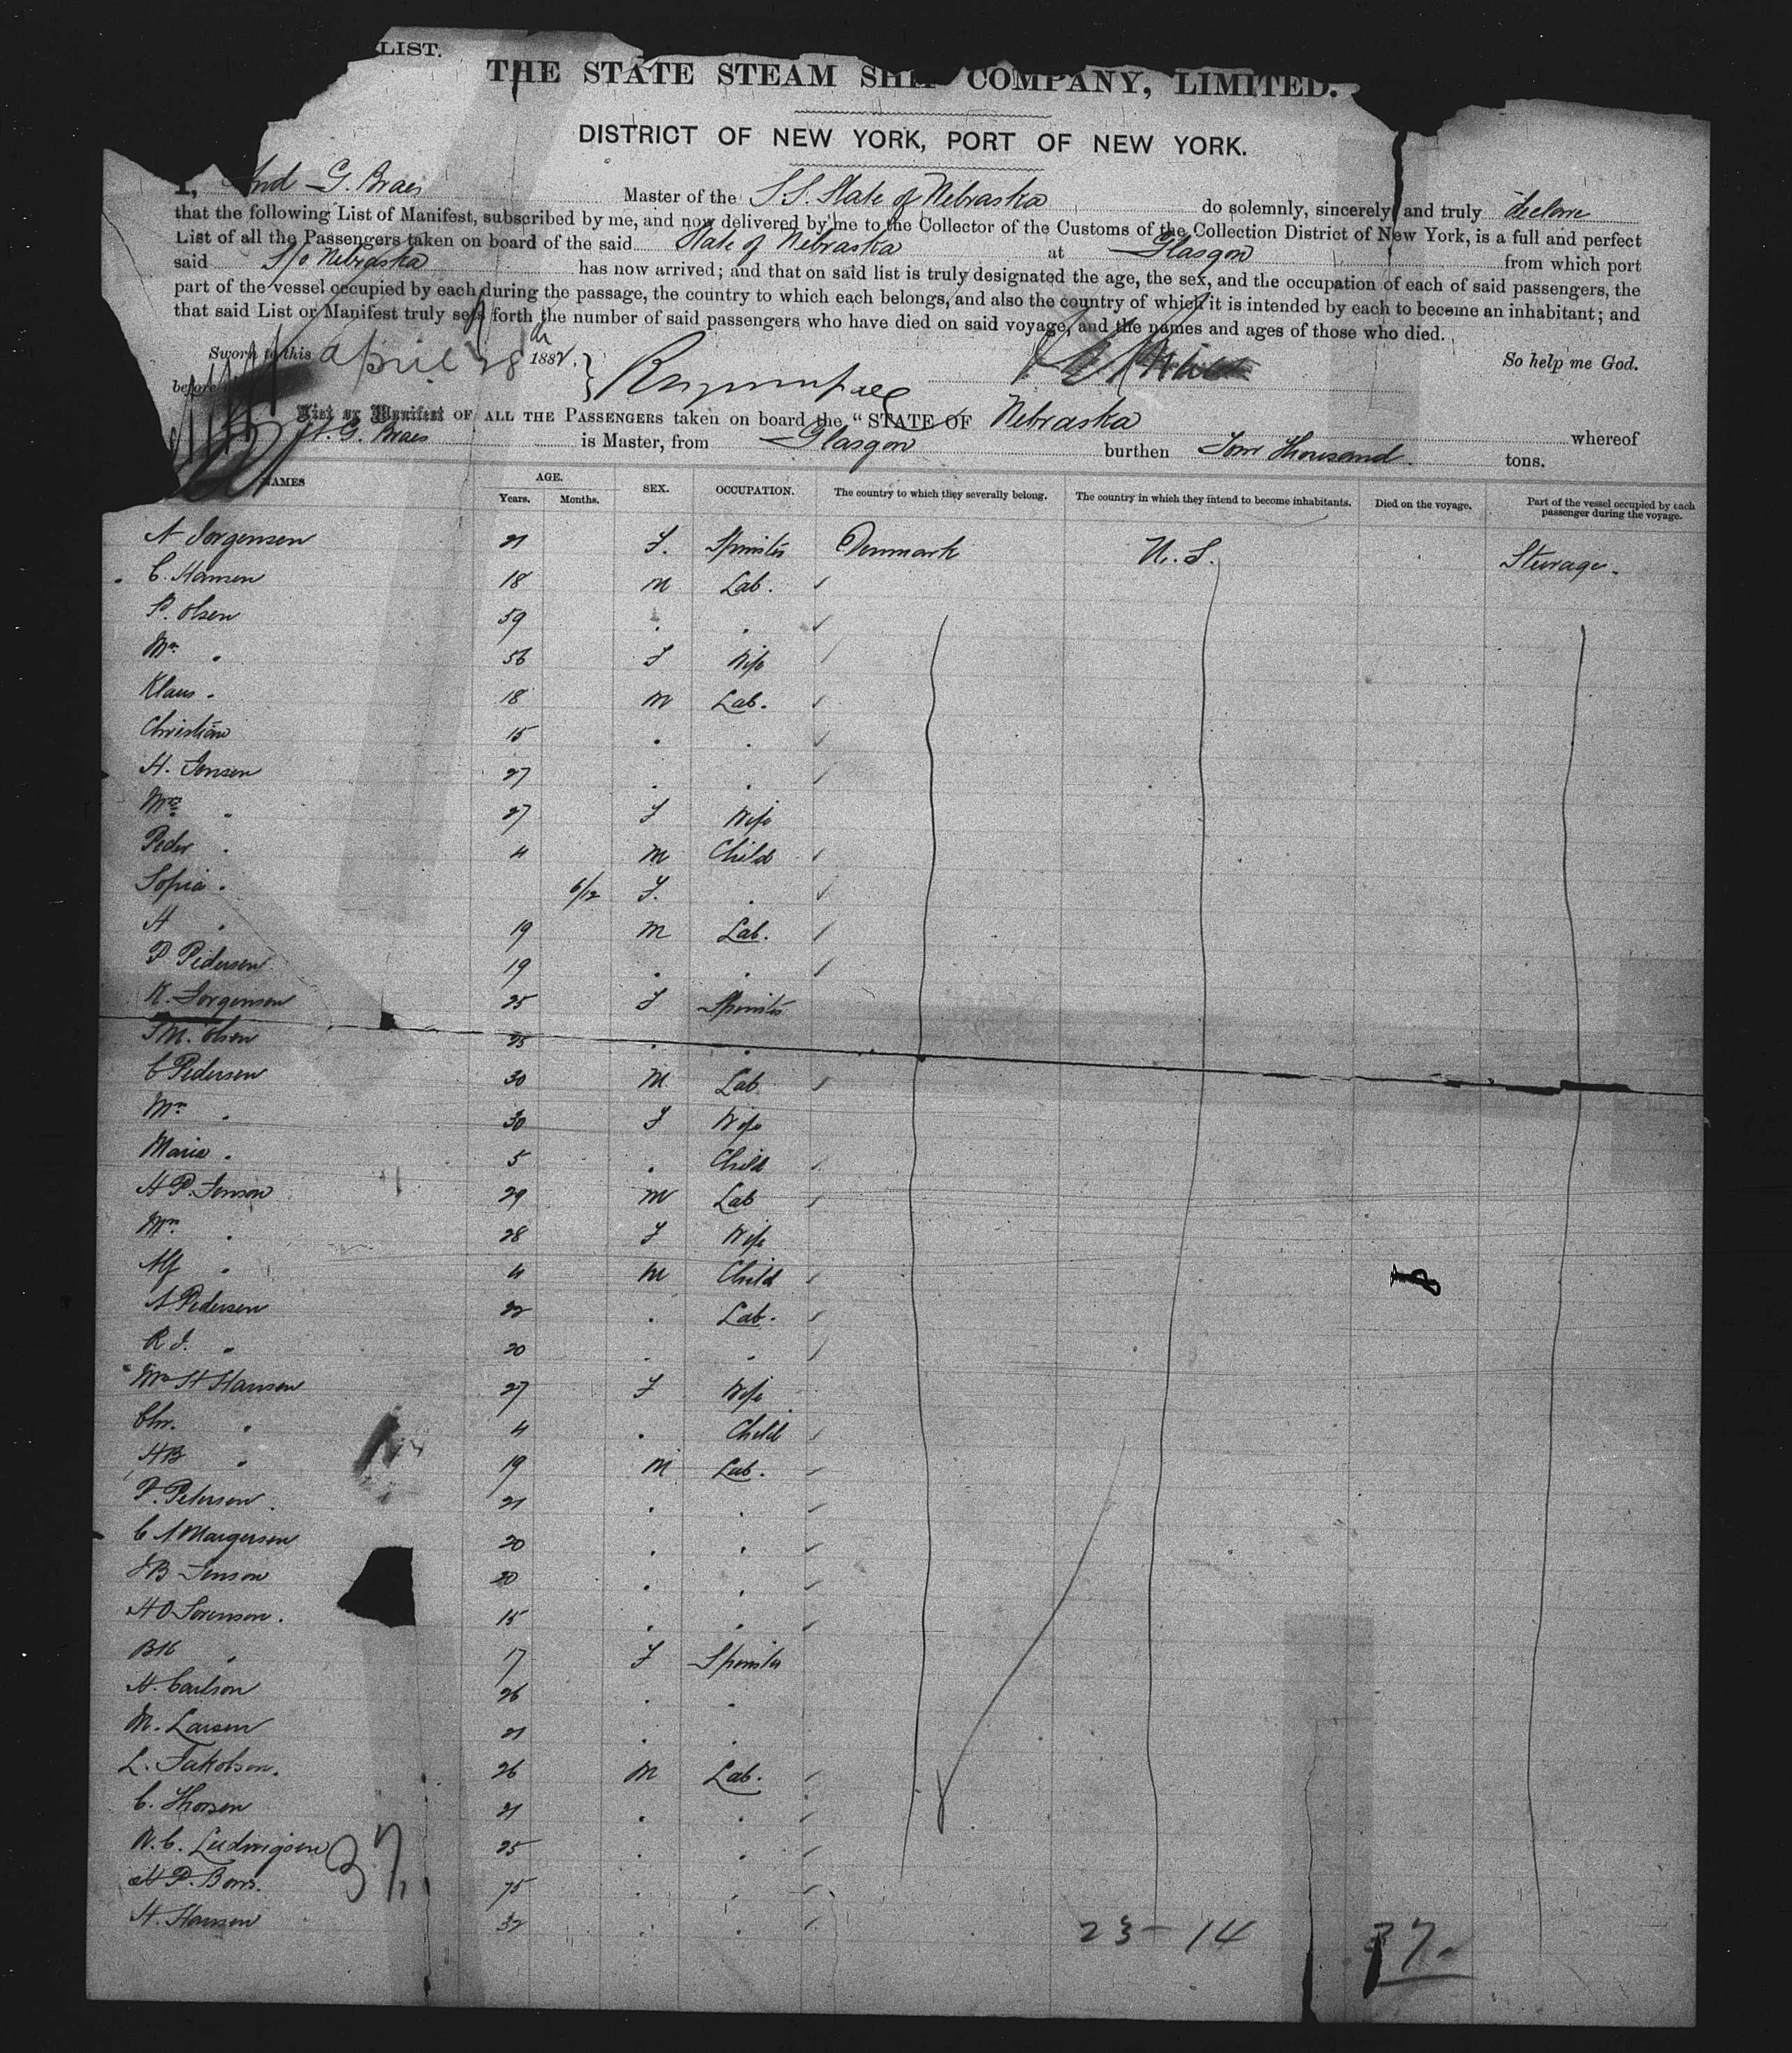 LIST.
THE STATE STEAM SHIP COMPANY, LIMITED.
DISTRICT OF NEW YORK, PORT OF NEW YORK.
I, And G. Braes Master of the S.S. State of Nebraska do solemnly, sincerely and truly declare
that the following List of Manifest, subscribed by me, and now delivered by me to the Collector of the Customs of the Collection District of New York, is a full and perfect
List of all the Passengers taken on board of the said State of Nebraska at Glasgow from which port
said S/s Nebraska has now arrived; and that on said list is truly designated the age, the sex, and the occupation of each of said passengers, the
part of the vessel occupied by each during the passage, the country to which each belongs, and also the country of which it is intended by each to become an inhabitant; and
that said List or Manifest truly sets forth the number of said passengers who have died on said voyage, and the names and ages of those who died.
Sworn to this April 28th 1882. So help me God.
before
List or Manifest OF ALL THE PASSENGERS taken on board the "STATE OF Nebraska whereof
A. G. Braes is Master, from Glasgow burthen Four Thousand tons.
NAMES AGE. Years. Months. SEX. OCCUPATION. The country to which they severally belong. The country in which they intend to become inhabitants. Died on the voyage. Part of the vessel occupied by each passenger during the voyage.
A Jorgensen 21 F. Spinster Denmark U.S. Steerage.
C. Hansen 18 M Lab.
P. Olsen 59 . .
Mrs . 56 F Wife
Klaus . 18 M Lab.
Christian 15 . .
H. Jensen 27 . .
Mrs . 27 F Wife
Peder . 4 M Child
Sopia . 6/12 F. .
H . 19 M Lab.
P Pedersen 19 . .
K. Jorgensen 25 F Spinster
M. Olsen 25 . .
C Pedersen 30 M Lab
Mrs . 30 F Wife
Maria . 5 . Child
H P. Jenson 29 M Lab
Mrs . 28 F Wife
Alf . 4 M Child
A Pedersen 22 . Lab.
R J. . 20 . .
Mrs H Hansen 27 F Wife
Chr. . 4 . Child
HB . 19 M Lab.
P. Petersen 21 . .
C A Margersen 20 . .
JB Jenson 20 . .
H O Sorenson. 15 . .
BK . 17 F Spinster
H. Carlson 26 . .
M. Larsen 21 . .
L. Jakobson. 26 M Lab.
C. Thorsen 21 . .
N.C. Ludwigsen 25 . .
H P. Bons. 75 . .
H. Hansen 32 . .
37
23-14 37